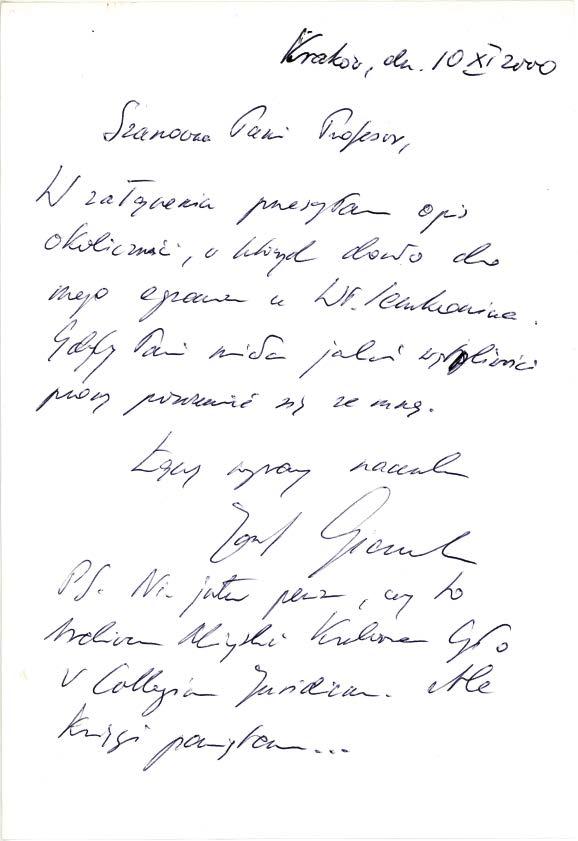 Kraków, dn. 10 XI 2000
Szanowna Pani Profesor,
W załączeniu przesyłam opis
okoliczności, w których doszło do
mego w
Gdyby Pani miała jakieś wątpliwości
proszę porozumieć się ze mną.
Łączę wyrazy szacunku
PS. Nie jestem pewien, czy to
Archiwum Miejskie Krakowa było
w Collegium Juridicum. Ale
Księgi pamiętam...